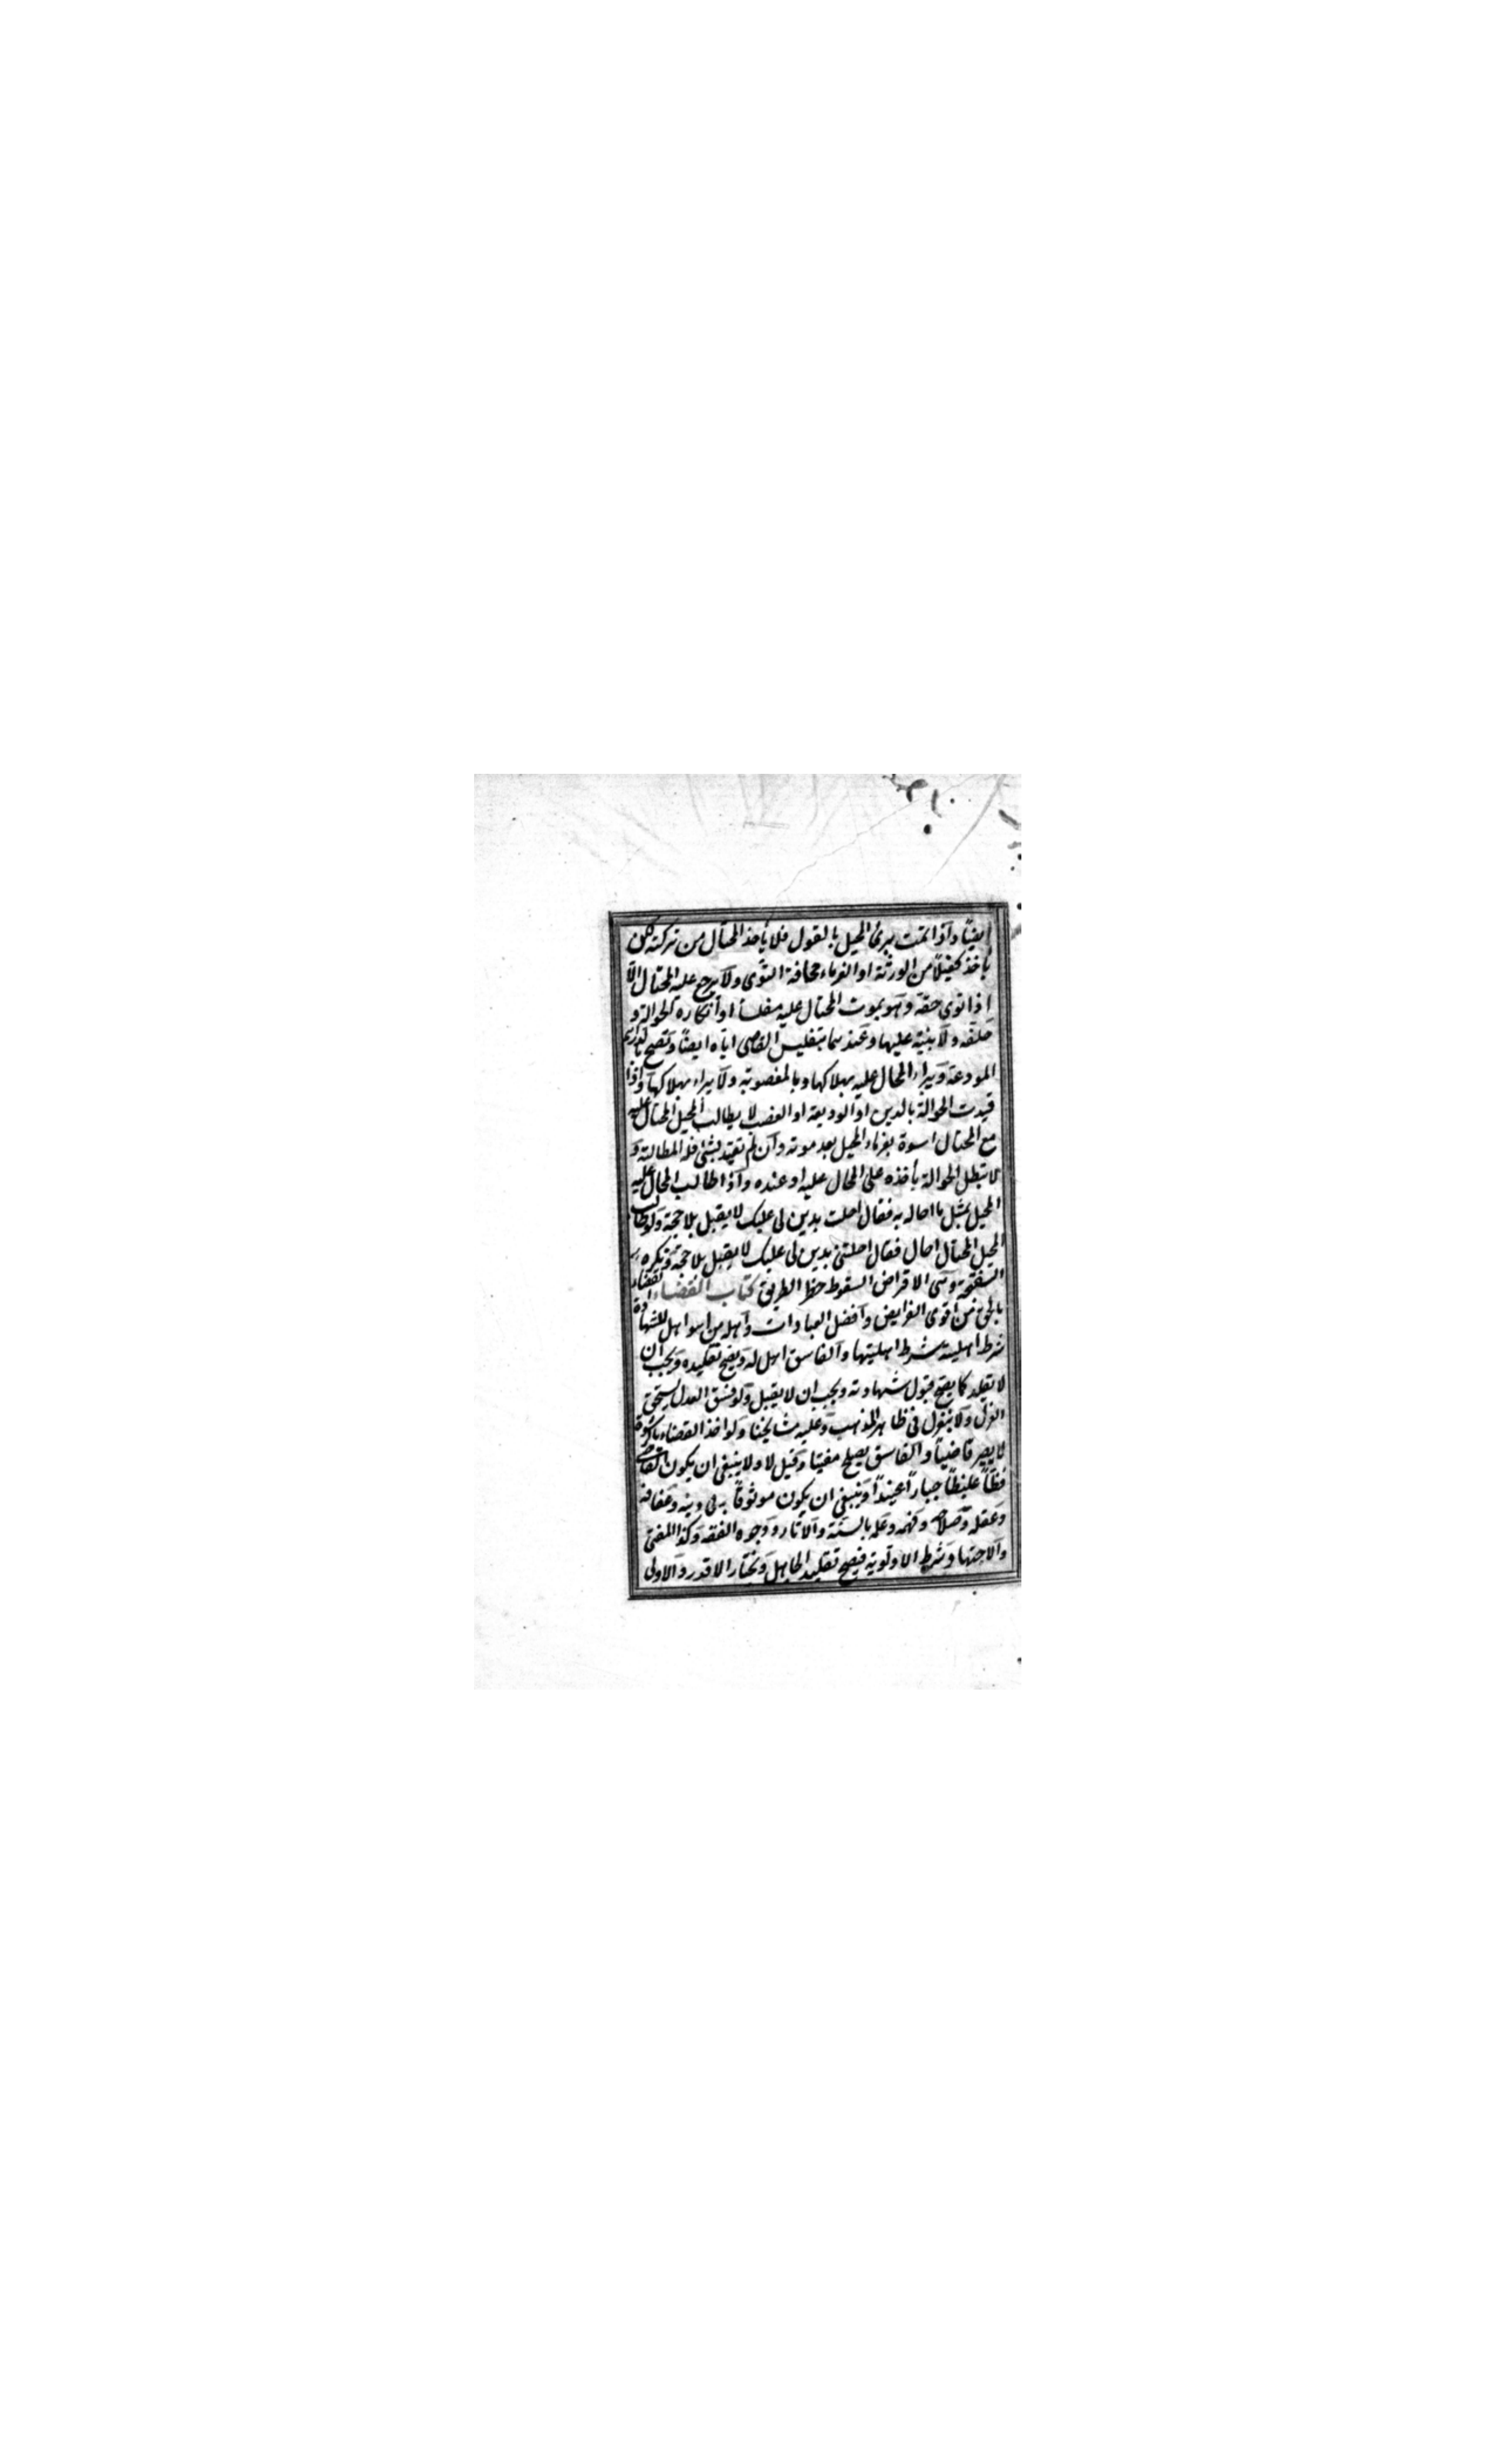 ايضًا واذا تمت برئ المحيل بالقول فلا يأخذ المحتال من تركته لكن
يأخذ كفيلًا من الورثة او الغرماء مخافة التوى ولا يرجع عليه المحتال الّا
اذا توى حقه وهو بموت المحتال عليه مفلسا او انكاره الحوالة و
حلفه ولا بينة عليها وعندهما بتفليس القاضى اياه ايضًا وتصح بالدراهم
المودعة ويبراء المحال عليه بهلاكها وبالمغصوبة ولا يبراء بهلاكها واذا
قيدت الحوالة بالدين او الوديعة او الغصب لا يطالب المحيل المحتال عليه
مع المحتال اسوة بغرماء المحيل بعد موته وان لم تقيد بشئ فله المطالبة و
لا تبطل الحوالة بأخذه على المحال عليه او عنده واذا طالب المحال عليه
المحيل بمثل ما احاله به فقال احلت بدين لى عليك لا يقبل بلا حجة ولو طالب
المحيل المحتال احال فقال احلتنى بدين لى عليك لا يقبل بلا حجة وتكره
السفتجة وهى الاقراض لسقوط خطر الطريق كتاب القضاء القضاء
بالحق من اقوى الفرايض وافضل العبادات واهله من هو اهل للشهادة
شرط اهليته شرط اهليتها والفاسق اهل له ويصح تقليده ويجب ان
لا يقلد كما يصح قبول شهادته ويجب ان لا يقبل ولو فسق العدل يستحق
العزل ولا ينعزل فى ظاهر المذهب وعليه مشايخنا ولو اخذ القضاء بالرشوة
لا يصير قاضيًا والفاسق يصلح مفتيا وقيل لا ولا ينبغى ان يكون القاضى
فظًّا غليظًا جبارًا عنيدًا وينبغى ان يكون موثوقًا به فى دينه وعفافه
وعقله وصلاحه وفهمه وعلمه بالسنة والآثار ووجوه الفقه وكذا المفتى
والاجتهاد شرط الاولوية فيصح تقليد الجاهل ويختار الاقدر والاولى